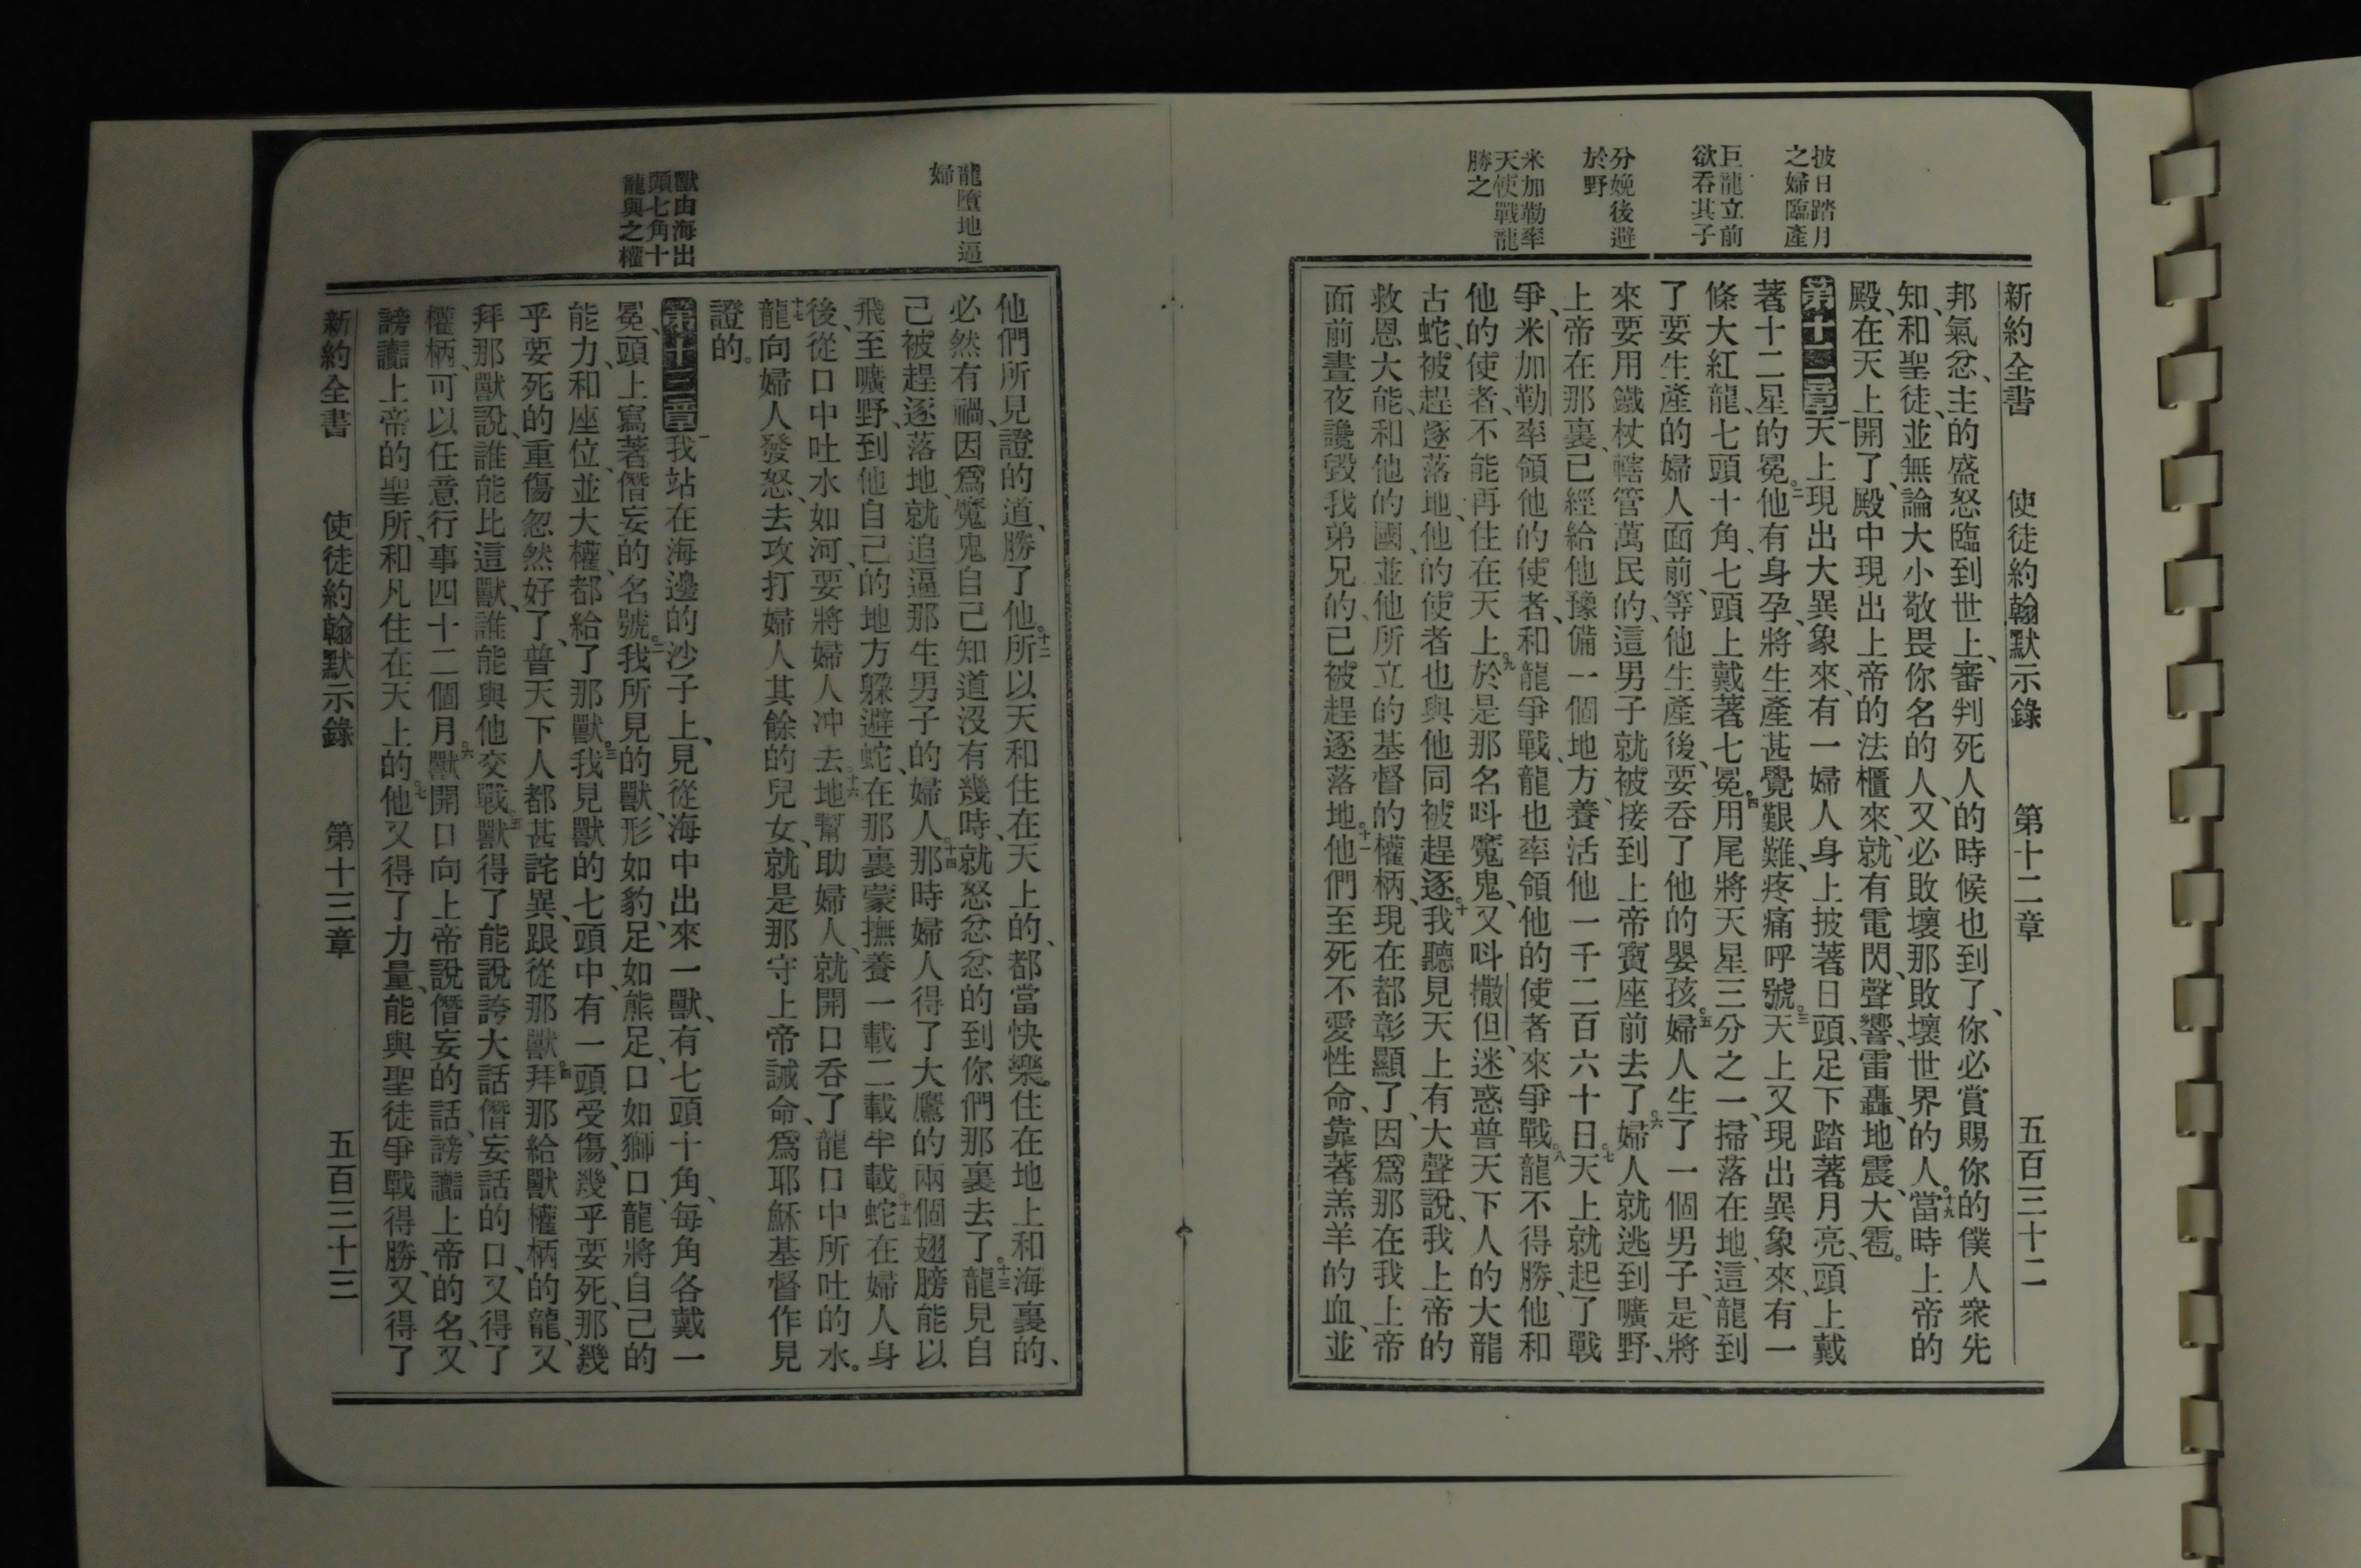 新約全書　使徒約翰默示錄　第十二章　五百三十二
披日踏月
之婦臨產
巨龍立前
欲吞其子
分娩後避
於野
米加勒率
天使戰龍
勝之
邦氣忿、主的盛怒臨到世上、審判死人的時候也到了、你必賞賜你的僕人衆先
知、和聖徒、並無論大小敬畏你名的人、又必敗壞那敗壞世界的人。十九當時上帝的
殿、在天上開了、殿中現出上帝的法櫃來、就有電閃、聲響、雷轟、地震、大雹。
第十二章一天上現出大異象來、有一婦人身上披著日頭、足下踏著月亮、頭上戴
著十二星的冕。二他有身孕、將生產甚覺艱難、疼痛呼號。三天上又現出異象來、有一
條大紅龍、七頭十角、七頭上戴著七冕。四用尾將天星三分之一、掃落在地、這龍到
了要生產的婦人面前、等他生產後、要吞了他的嬰孩。五婦人生了一個男子、是將
來要用鐵杖轄管萬民的、這男子就被接到上帝寶座前去了。六婦人就逃到曠野、
上帝在那裏、已經給他豫備一個地方、養活他一千二百六十日。七天上就起了戰
爭、米加勒率領他的使者、和龍爭戰、龍也率領他的使者來爭戰。八龍不得勝、他和
他的使者、不能再住在天上。九於是那名呌魔鬼、又呌撒但、迷惑普天下人的大龍
古蛇、被趕逐落地、他的使者也與他同被趕逐。十我聽見天上有大聲說、我上帝的
救恩大能、和他的國、並他所立的基督的權柄、現在都彰顯了、因爲那在我上帝
面前晝夜讒毀我弟兄的、已被趕逐落地。十一他們至死不愛性命、靠著羔羊的血、並
龍墮地逼
婦
獸由海出
頭七角十
龍與之權
他們所見證的道、勝了他。十二所以天和住在天上的、都當快樂。住在地上和海裏的、
必然有禍、因爲魔鬼自己知道沒有幾時、就怒忿忿的到你們那裏去了。十三龍見自
己被趕逐落地、就追逼那生男子的婦人。十四那時婦人得了大鷹的兩個翅膀、能以
飛至曠野、到他自己的地方躱避蛇、在那裏蒙撫養一載二載半載。十五蛇在婦人身
後、從口中吐水、如河、要將婦人冲去。十六地幫助婦人、就開口吞了龍口中所吐的水。
十七龍向婦人發怒、去攻打婦人其餘的兒女、就是那守上帝誡命、爲耶穌基督作見
證的。
第十三章一我站在海邊的沙子上、見從海中出來一獸、有七頭十角、每角各戴一
冕、頭上寫著僭妄的名號。二我所見的獸、形如豹、足如熊足、口如獅口、龍將自己的
能力、和座位、並大權、都給了那獸。三我見獸的七頭中、有一頭受傷、幾乎要死、那幾
乎要死的重傷忽然好了、普天下人都甚詫異、跟從那獸。四拜那給獸權柄的龍、又
拜那獸說、誰能比這獸、誰能與他交戰。五獸得了能說誇大話僭妄話的口、又得了
權柄、可以任意行事四十二個月。六獸開口向上帝說僭妄的話、謗讟上帝的名、又
謗讟上帝的聖所、和凡住在天上的。七他又得了力量、能與聖徒爭戰得勝、又得了
新約全書　使徒約翰默示錄　第十三章　五百三十三